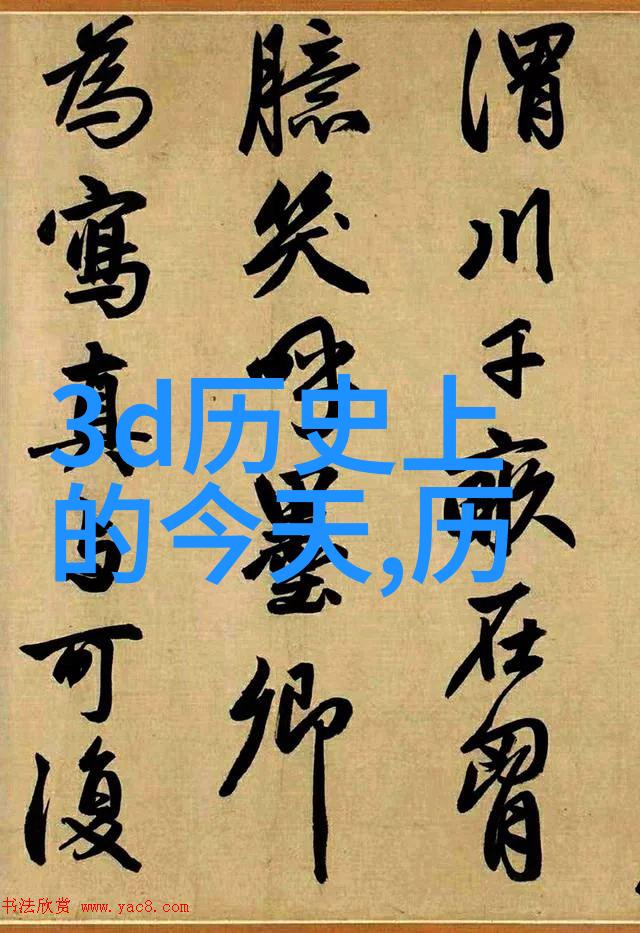 渭川千畝在胷
臆笑呼墨卿
為寫真与可復
3d历史上
的今天,历
书法欣赏 www.yac8.com